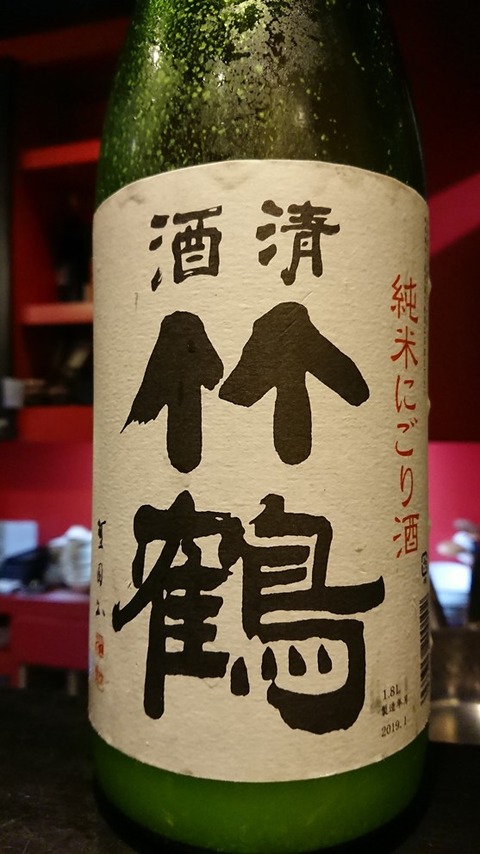 清酒
竹鶴
純米にごり酒
1.8L
製造年月
2019.1